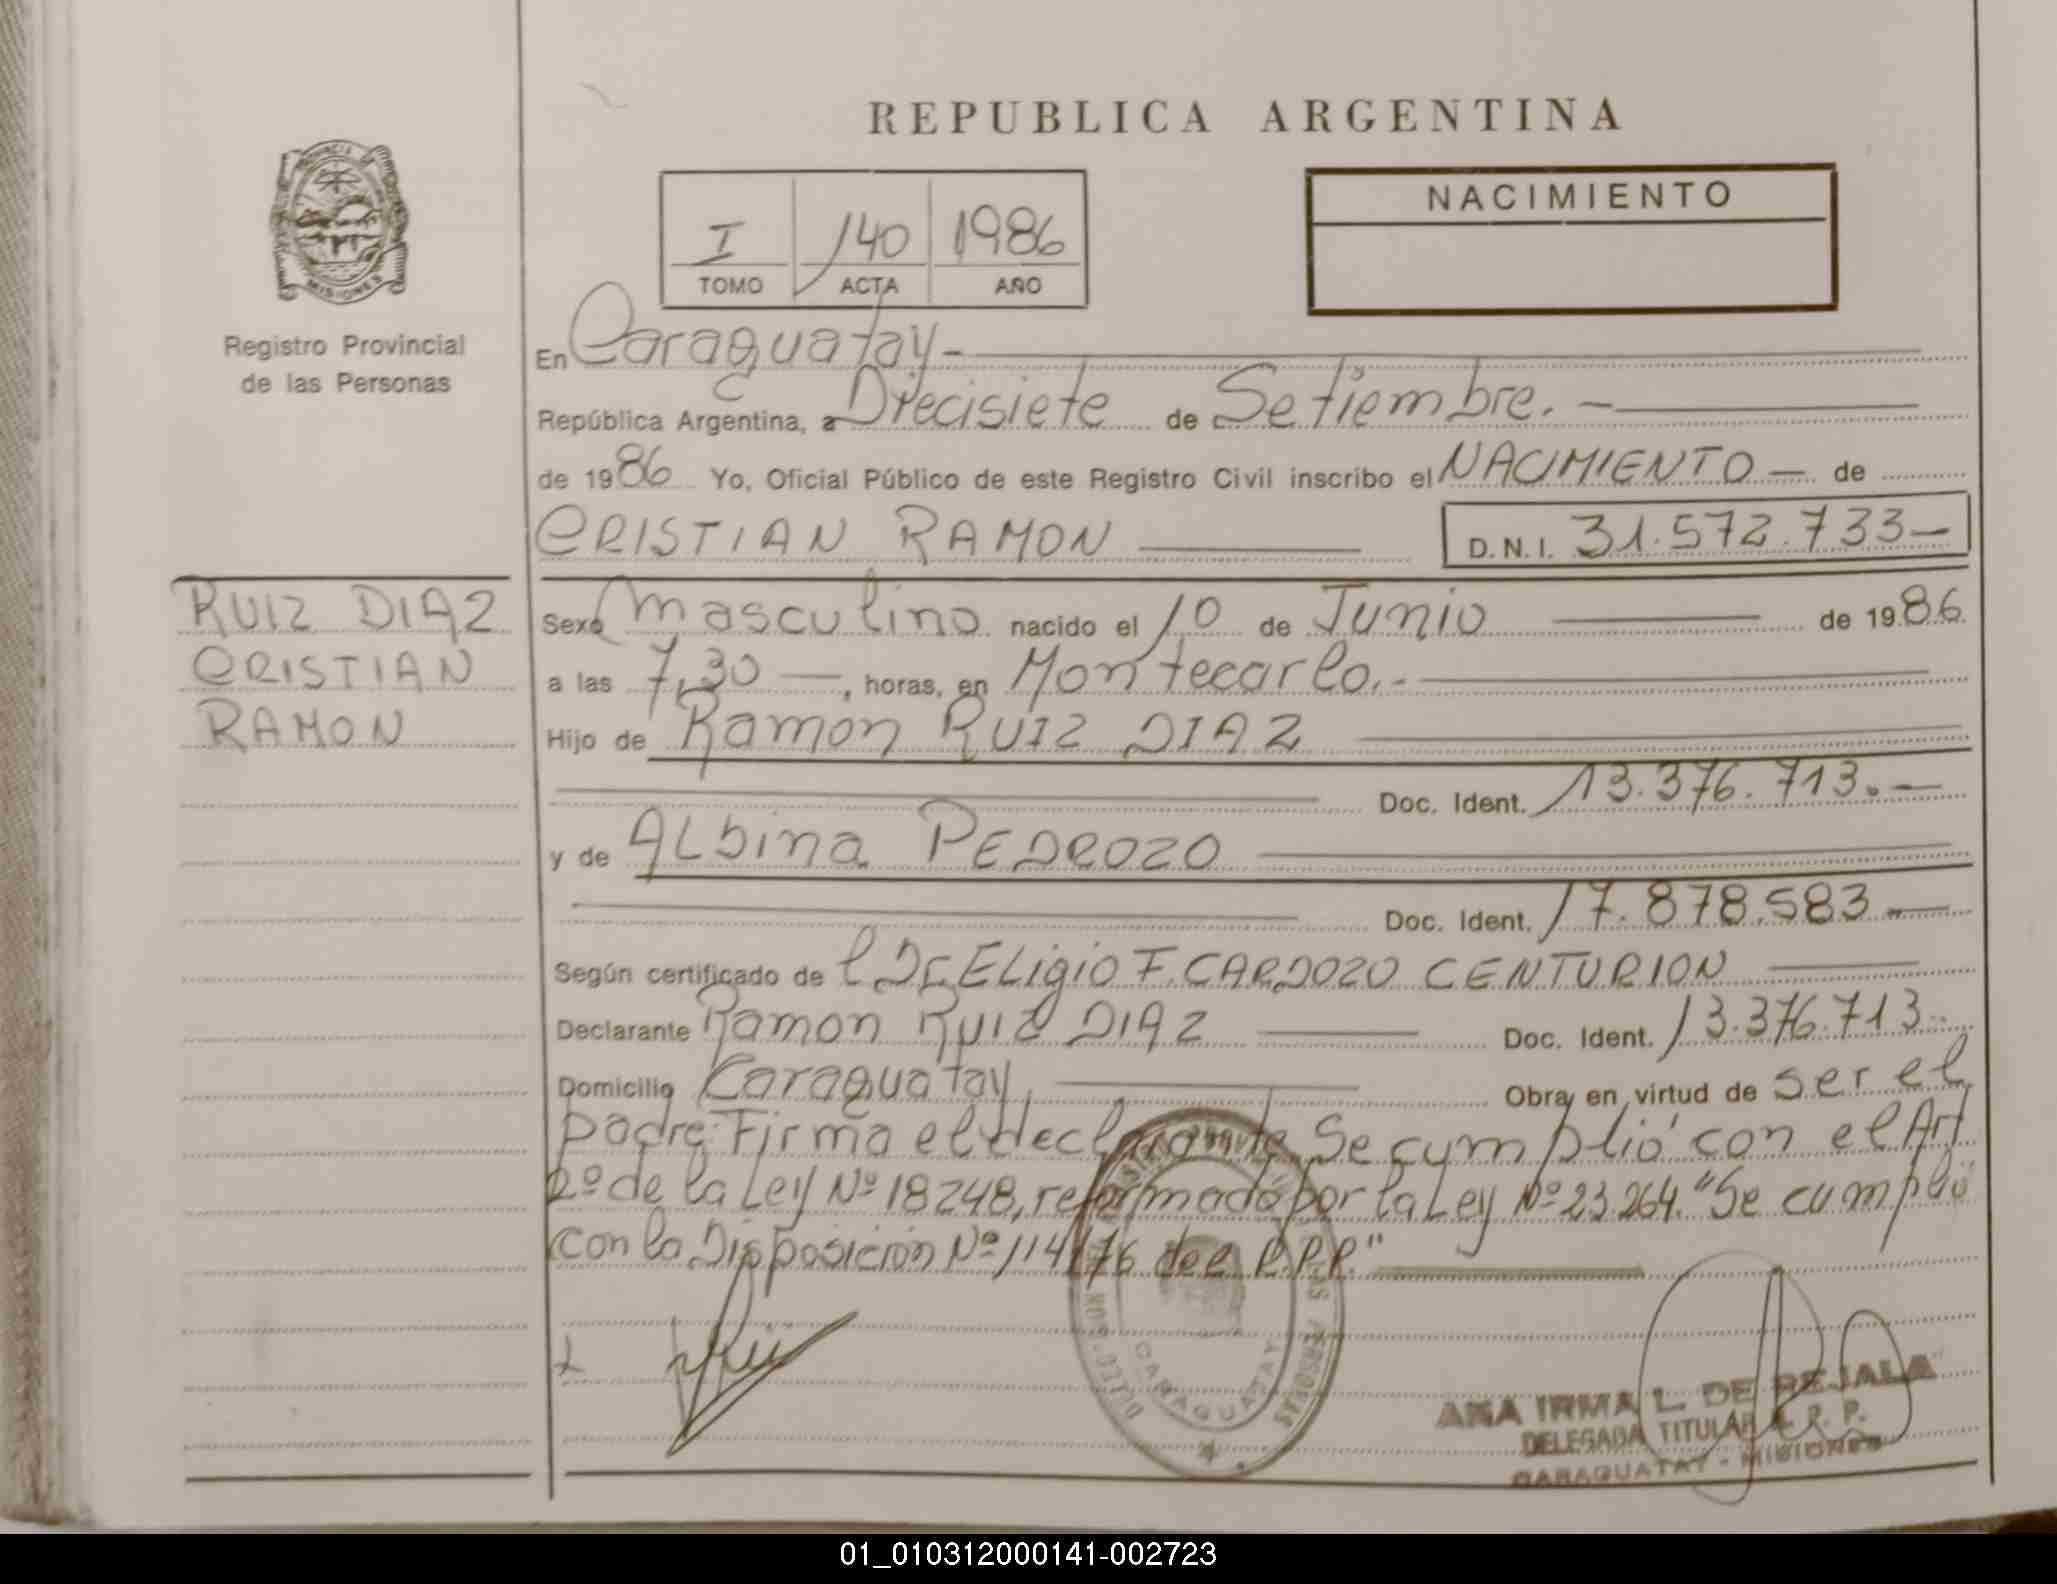 REPUBLICA ARGENTINA
PROVINCIA DE
MISIONES
Registro Provincial
de las Personas
I 140 1986
TOMO ACTA AÑO
NACIMIENTO
En Caraguatay-
República Argentina, a Diecisiete de Setiembre. -
de 1986 Yo, Oficial Público de este Registro Civil inscribo el NACIMIENTO - de
CRISTIAN RAMON D.N.I. 31.572.733-
RUIZ DIAZ
CRISTIAN
RAMON
Sexo Masculino nacido el 10 de Junio de 1986
a las 7,30 -, horas, en Montecarlo.-
Hijo de Ramon RUIZ DIAZ
Doc. Ident. 13.376.713.-
y de ALbina PEDROZO
Doc. Ident. 17.878.583-
Según certificado de l Dr ELigio F. CARDOZO CENTURION
Declarante Ramon RUIZ DIAZ Doc. Ident. 13.376.713-
Domicilio Caraguatay, Obra en virtud de ser el
padre. Firma el declarante. Se cumplió con el Art
2º de la Ley Nº 18248, reformado por la Ley Nº 23.264. "Se cumplió
con la Disposición Nº 114/76 del R.P.P."
CARAGUATAY
PERSONAS
ANA IRMA L. DE REJALA
DELEGADA TITULAR R. P.
CARAGUATAY - MISIONES
01_010312000141-002723